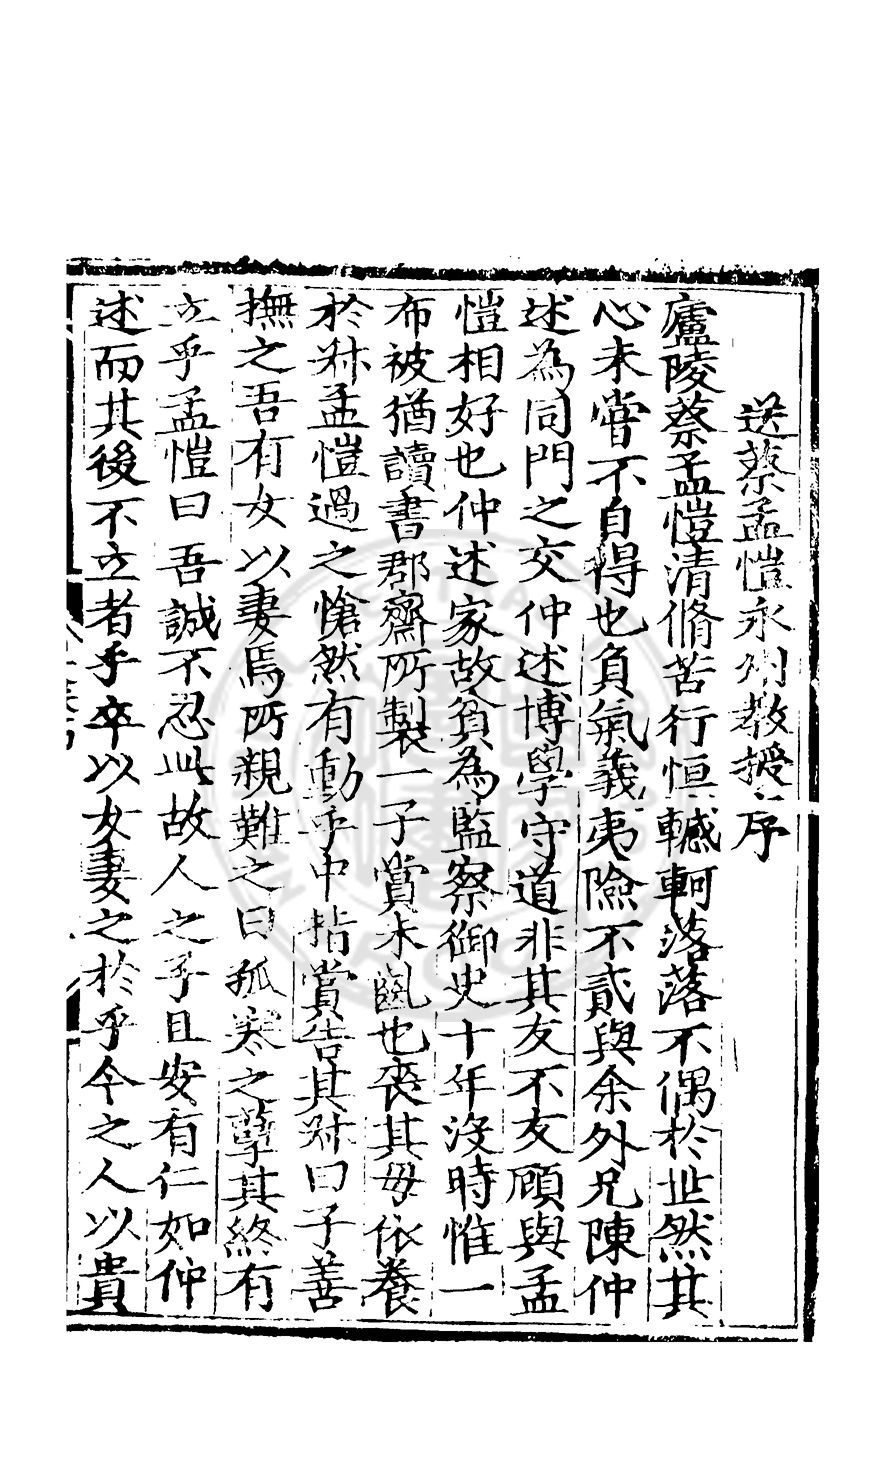 送蔡孟愷永州教授序
廬陵蔡孟愷清脩苦行恒轗軻落落不偶於世然其
心未嘗不自得也負氣義夷險不貳與余外兄陳仲
述為同門之交仲述博學守道非其友不友顧與孟
愷相好也仲述家故貧為監察御史十年沒時惟一
布被猶讀書郡齋所製一子賞未齓也喪其母依養
於叔孟愷過之愴然有動乎中指賞告其叔曰子善
撫之吾有女以妻焉所親難之曰孤寒之孽其終有
立乎孟愷曰吾誠不忍此故人之子且安有仁如仲
述而其後不立者乎卒以女妻之於乎今之人以貴